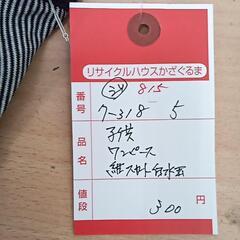 リサイクルハウスかざぐるま
815
番号 7-318 5
品名 子供
ワンピース
紺スカート白水玉
値段 300 円